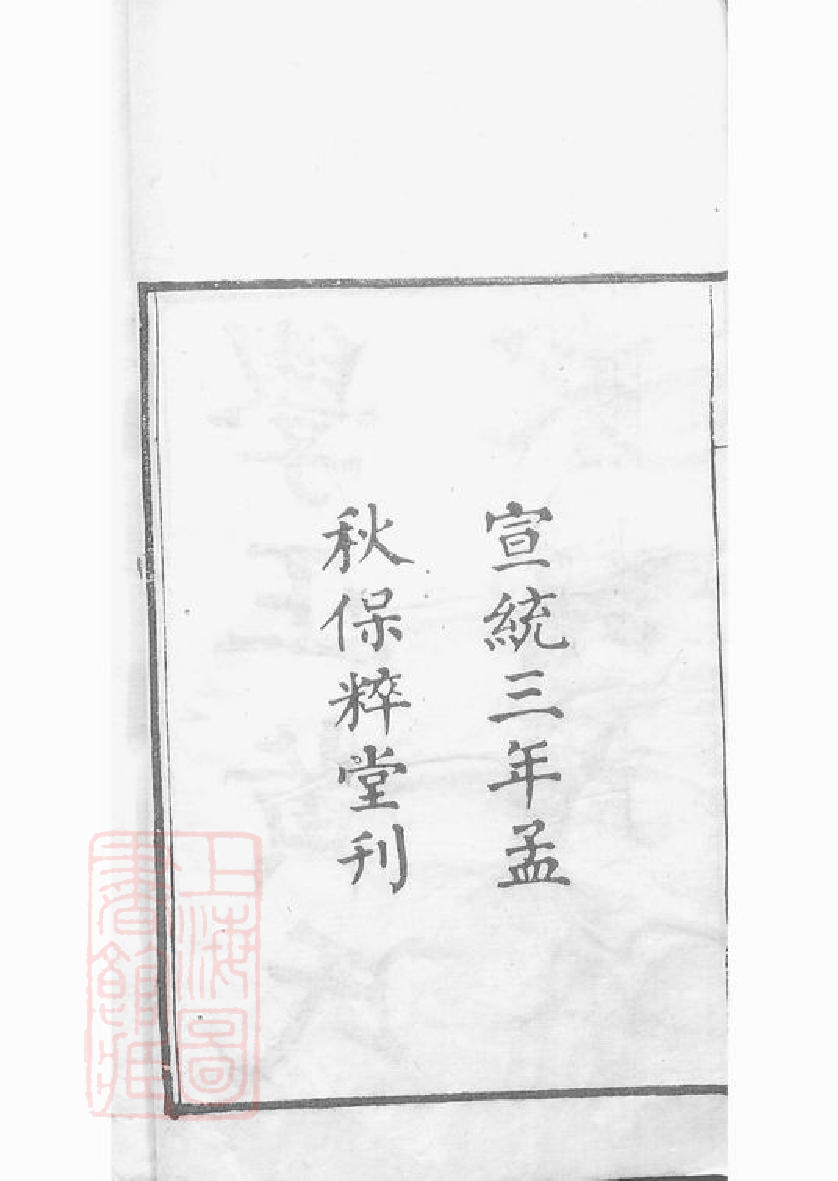 宣統三年孟
秋保粹堂刊
上海圖
書館藏